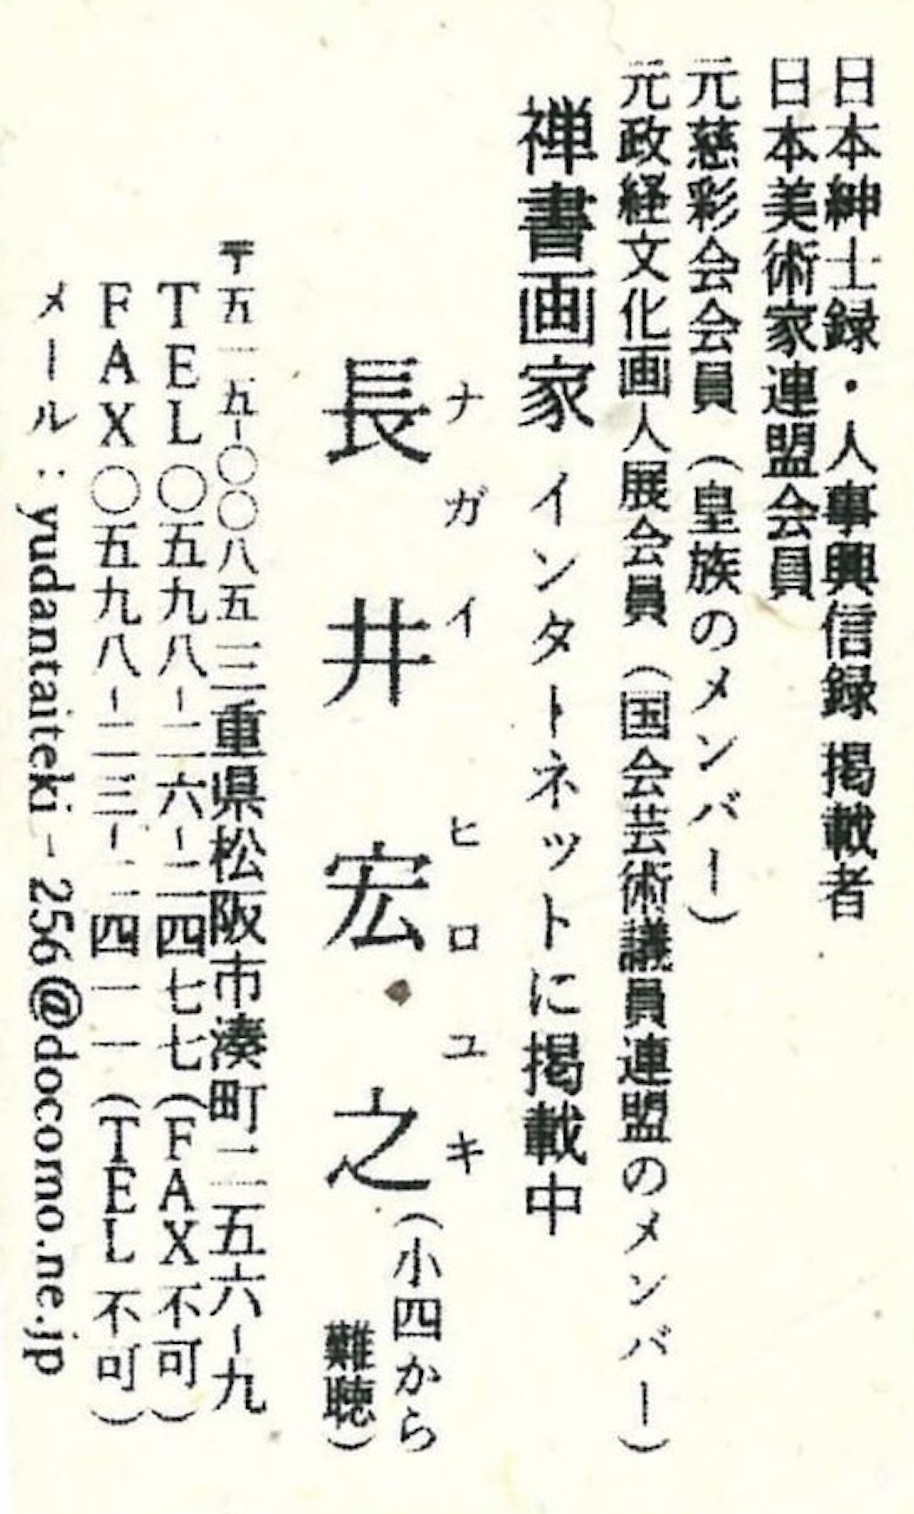 日本紳士録・人事興信録 掲載者
日本美術家連盟会員
元慈彩会会員（皇族のメンバー）
元政経文化画人展会員（国会芸術議員連盟のメンバー）
禅書画家 インターネットに掲載中
ナガイ ヒロユキ
長井宏之（小四から難聴）
〒五一五-〇〇八五 三重県松阪市湊町二五六-九
TEL〇五九八-二六-二四七七（FAX不可）
FAX〇五九八-二三-二四一一（TEL不可）
メール：yudantaiteki-256@docomo.ne.jp